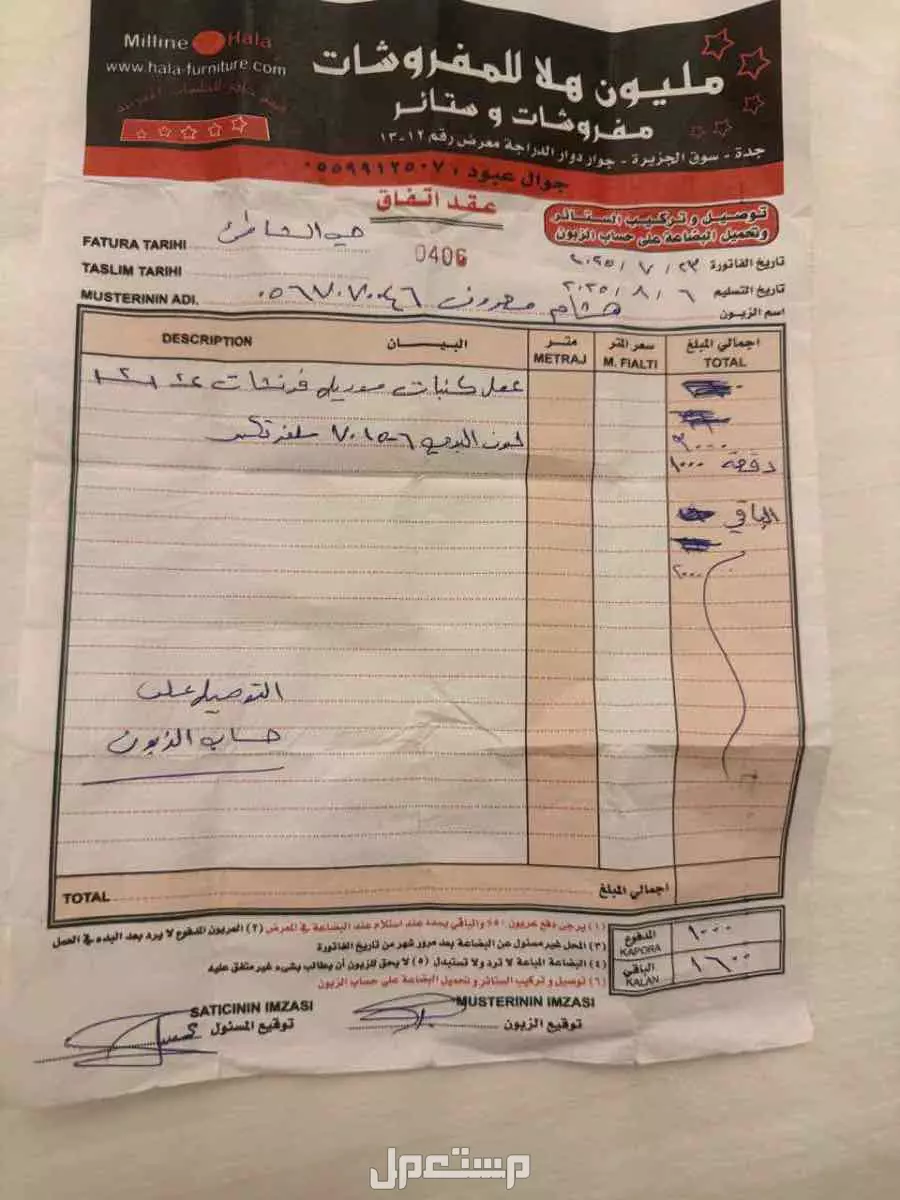 Milline Hala
www.hala-furniture.com
مليون هلا للمفروشات
مفروشات و ستائر
جدة - سوق الجزيرة - جوار دوار الدراجة معرض رقم ١٢-١٣
جوال عبود : ٠٥٥٩٩١٢٥٠٧
عقد اتفاق
توصيل و تركيب الستائر
وتحميل البضاعة على حساب الزبون
0406
FATURA TARIHI حي الشاطئ تاريخ الفاتورة ٢٣ / ٧ / ٢٠٢٥
TASLIM TARIHI تاريخ التسليم ٦ / ٨ / ٢٠٢٥
MUSTERININ ADI. اسم الزبون هشام ٠٥٦٧٠٧٠٠٤٦
DESCRIPTION البيــــان متـر METRAJ سعر المتر M. FIALTI اجمالي المبلغ TOTAL
عمل كنبات موديل فرنشات
٣٠٠٠
لون البيج ٦-٧٠١٥
دفعة ١٠٠٠
الباقي
٢٠٠٠
التوصيل على
حساب الزبون
TOTAL اجمالي المبلغ
(١) يرجى دفع عربون ٥٠٪ والباقي يسدد عند استلام عند البضاعة في المعرض (٢) العربون المدفوع لا يرد بعد البدء في العمل
(٣) المحل غير مسئول عن البضاعة بعد مرور شهر من تاريخ الفاتورة
(٤) البضاعة المباعة لا ترد ولا تستبدل (٥) لا يحق للزبون أن يطالب بشيء غير متفق عليه
(٦) توصيل و تركيب الستائر و تحميل البضاعة على حساب الزبون
المدفوع KAPORA ١٠٠٠
الباقي KALAN ١٦٠٠
SATICININ IMZASI توقيع المسئول
MUSTERININ IMZASI توقيع الزبون
مستعمل